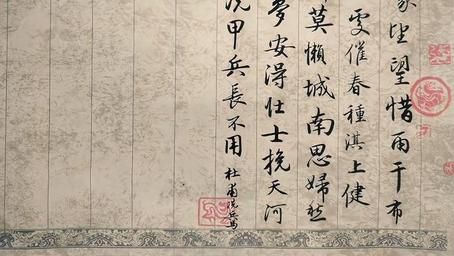 家望望惜雨干布
處催春種淇上健
莫懶城南思婦愁
夢安得壮士挽天河
洗甲兵長不用
杜甫洗兵馬